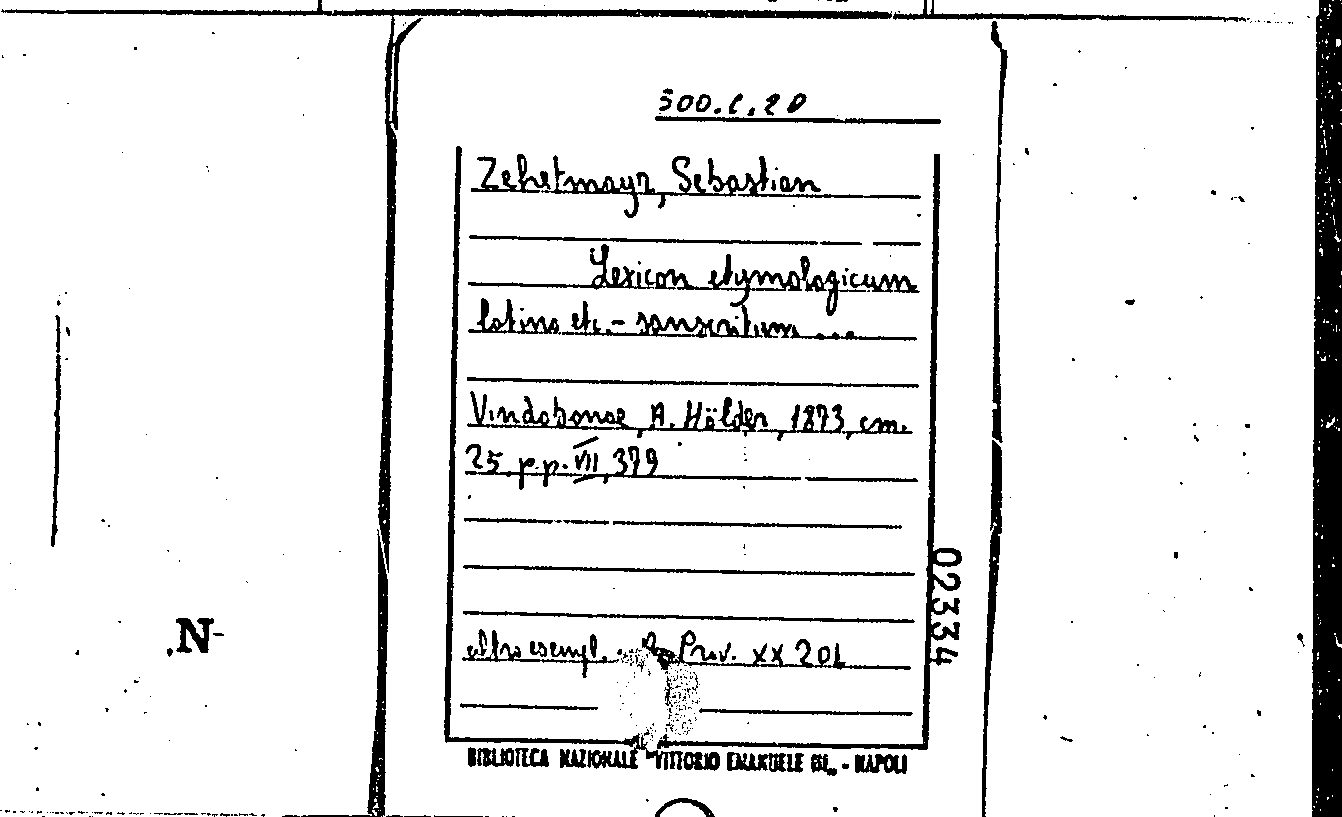 500.C.20
Zehetmayr, Sebastian
Lexicon etymologicum
latino etc.- sanscritum ...
Vindobonae, A. Hölder, 1873, cm.
25 p.p. VII, 379
altro esempl. Prov. XX 201
02334
BIBLIOTECA NAZIONALE "VITTORIO EMANUELE III„ - NAPOLI
.N-